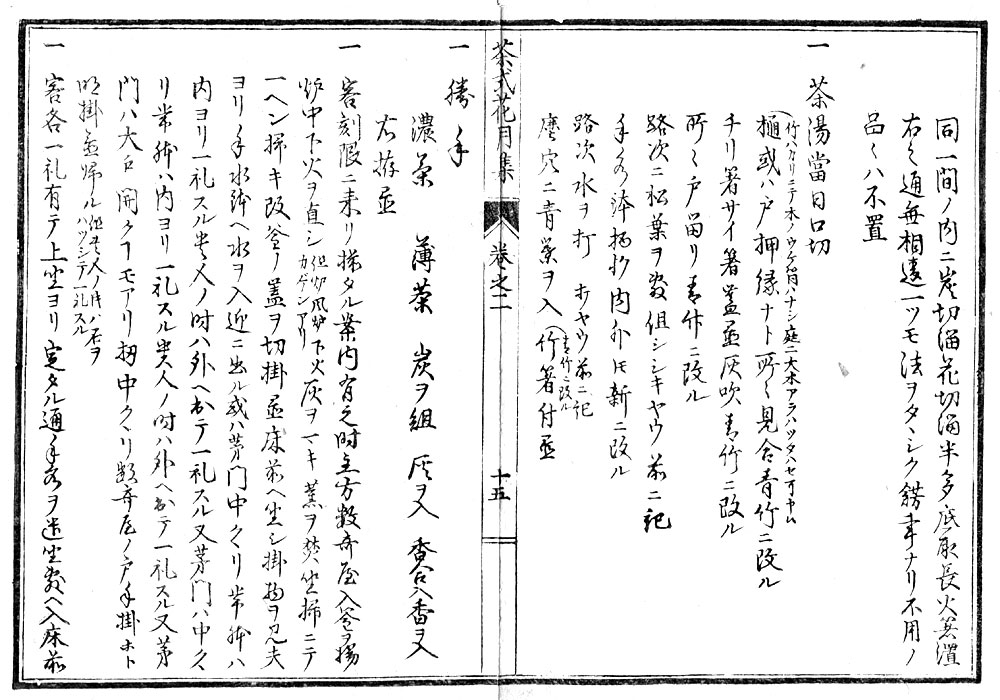 同一間ノ内ニ炭切溜花切溜半多底取長火箕置
右之通無相違一ツモ法ヲタヽシク錺事ナリ不用ノ
品々ハ不置
一 茶湯當日口切
(竹ハカリニテ木ノウケ筒ハナシ庭ニ大木アラハツタハセ可申ヤム
樋或ハ戸押縁ナト所々見合青竹ニ改ル
チリ箸サイ箸蓋置灰吹青竹ニ改ル
所々戸留リ青竹ニ改ル
路次ニ松葉ヲ敷但シシキヤウ前ニ記
手水鉢柄杓内外氏新ニ改ル
路次水ヲ打 打ヤウ前ニ記
塵穴ニ青葉ヲ入(竹箸付置
青竹ニ改ル
茶式花月集 卷之二 十五
一 勝手
濃茶 薄茶 炭ヲ組 灰ヲ入 香合ヘ香ヲ入
右拵置
一 客刻限ニ来リ揃タル案内有之時主方数寄屋入釜ヲ揚
炉中下火ヲ直シ 但炉風炉下火灰ヲマキ薫ヲ焚坐掃ニテ
カゲンアリ
一ヘン掃キ改釜ノ蓋ヲ切掛置床前ヘ坐シ掛物ヲ見夫
ヨリ手水鉢ヘ水ヲ入迎ニ出ル或ハ茅門中クヽリ常躰ハ
内ヨリ一礼スル貴人ノ時ハ外ヘ出テ一礼スル又茅門ハ中クヽ
リ常躰ハ内ヨリ一礼スル貴人ノ時ハ外ヘ出テ一礼スル又茅
門ハ大戸開クフモアリ扨中クヽリ数寄屋ノ戸手掛ホト
明掛置帰ル 但貴人ノ時ハ石ヲ
ハツシテ一礼スル
一 客各一礼有テ上坐ヨリ定タル通手水ヲ遣坐敷ヘ入床前